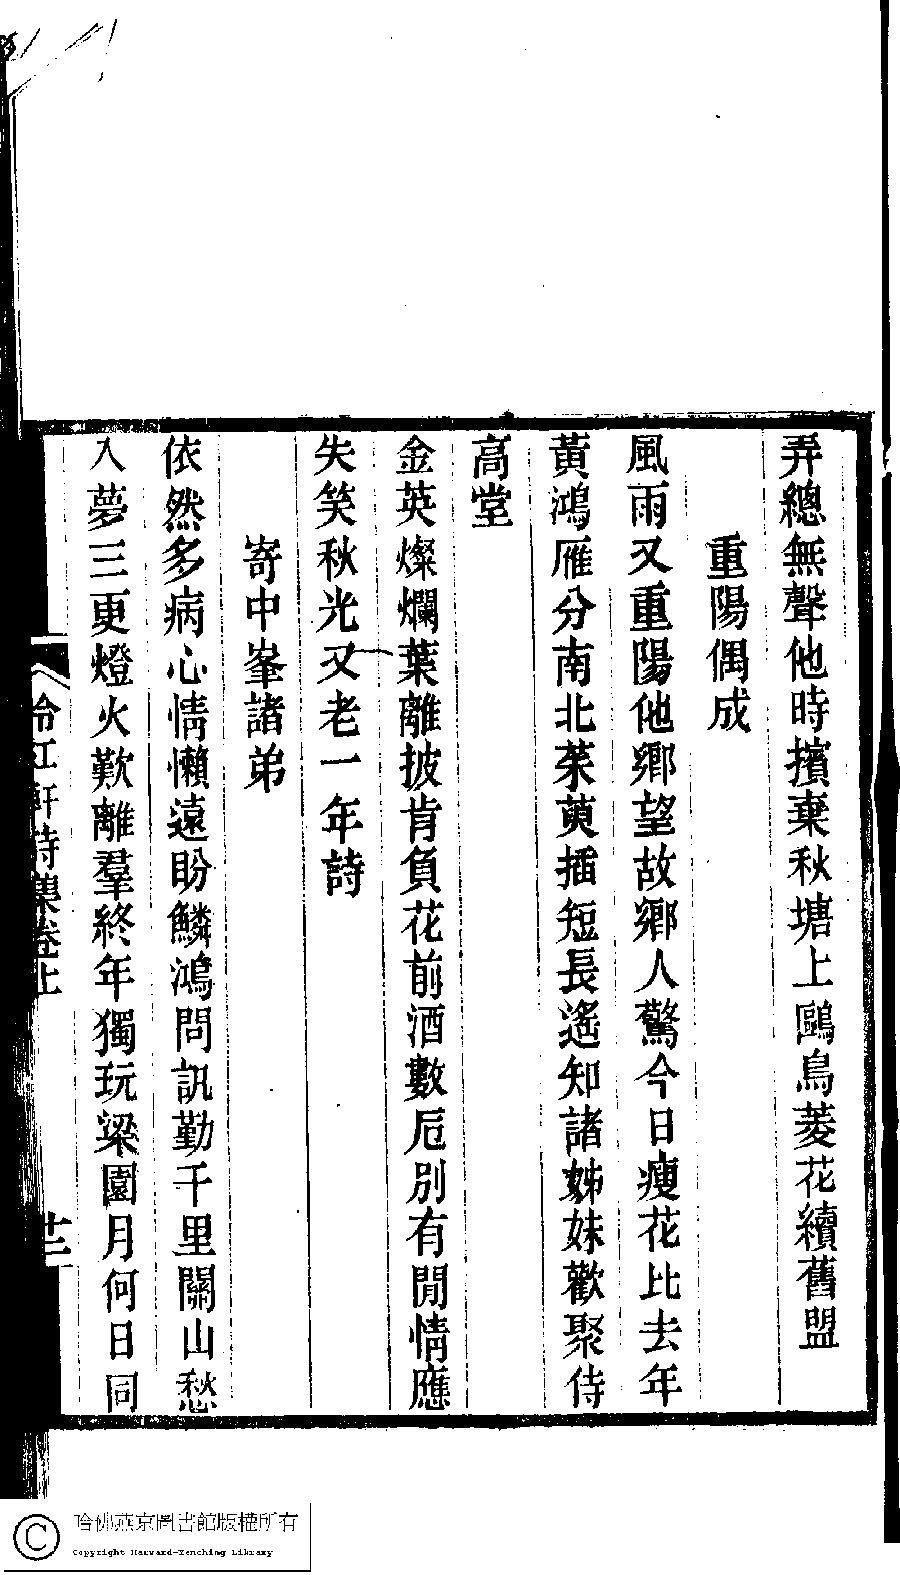 弄總無聲他時擯棄秋塘上鷗鳥菱花續舊盟
重陽偶成
風雨又重陽他鄉望故鄉人驚今日瘦花比去年
黃鴻雁分南北茱萸插短長遙知諸姊妹歡聚侍
高堂
金英燦爛葉離披肯負花前酒數卮別有閒情應
失笑秋光又老一年詩
寄中峯諸弟
依然多病心情懶遠盼鱗鴻問訊勤千里關山愁
入夢三更燈火歎離羣終年獨玩梁園月何日同
冷紅軒詩集卷上
廿二
哈佛燕京圖書館版權所有
Copyright Harvard-Yenching Library